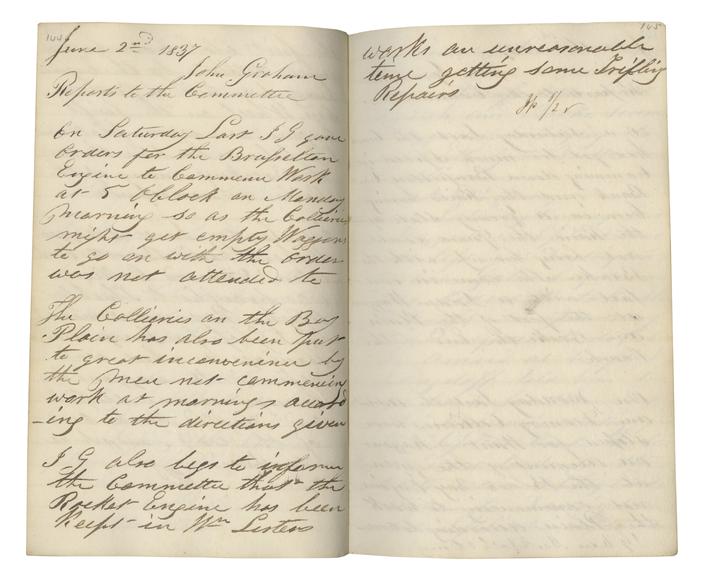 144
June 2nd 1837
John Graham
Reports to the Committee
On Saturday Last J G gave
orders for the Brusselton
Engine to Commence Work
at 5 Oblock on Monday
morning so as the Collieries
might get empty Waggons
to go on with the order
was not attended to
The Collieries on the Bay
Plain has also been put
to great inconvenience by
the men not commencing
work at mornings accord
-ing to the directions given
J G also begs to inform
the Committee that the
Rocket Engine has been
Keept in Wm Listers
145
works an unreasonable
time getting some Trifling
Repairs